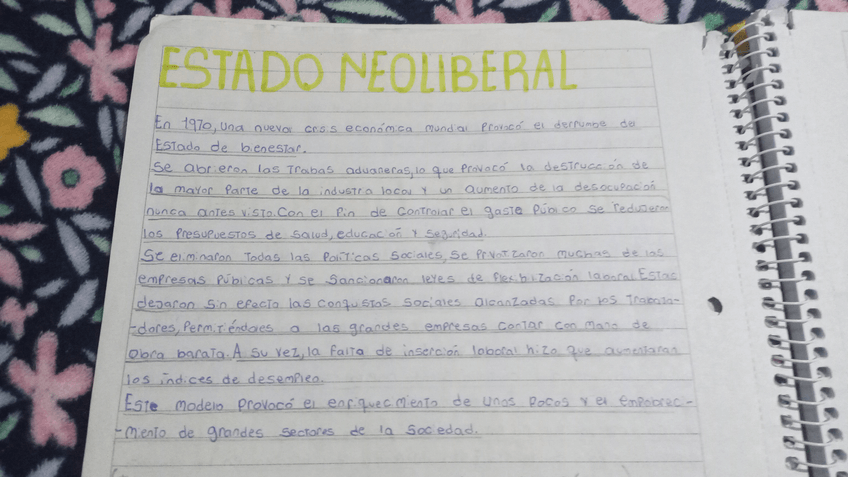 ESTADO NEOLIBERAL
En 1970, una nueva crisis económica mundial provocó el derrumbe del
Estado de bienestar.
Se abrieron las trabas aduaneras, lo que provocó la destrucción de
la mayor parte de la industria local y un aumento de la desocupación
nunca antes visto. Con el fin de controlar el gasto público se redujeron
los presupuestos de salud, educación y seguridad.
Se eliminaron todas las políticas sociales, se privatizaron muchas de las
empresas públicas y se sancionaron leyes de flexibilización laboral. Estas
dejaron sin efecto las conquistas sociales alcanzadas por los trabaja-
-dores, permitiéndoles a las grandes empresas contar con mano de
obra barata. A su vez, la falta de inserción laboral hizo que aumentaran
los índices de desempleo.
Este modelo provocó el enriquecimiento de unos pocos y el empobreci-
-miento de grandes sectores de la sociedad.